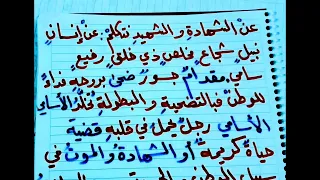 عن الشهادة والشهيد نتكلم. عن إنسانٍ
نبيل شجاع مخلص ذي خلقٍ رفيع
سامي. مقدام جسور ضحى بروحه فداءً
للوطن فبالتضحية والبطولة تخلد الأسامي
الأسامي رجل يحمل في قلبه قضية
حياة كريمة أو الشهادة والموت في
سبيل الوطن